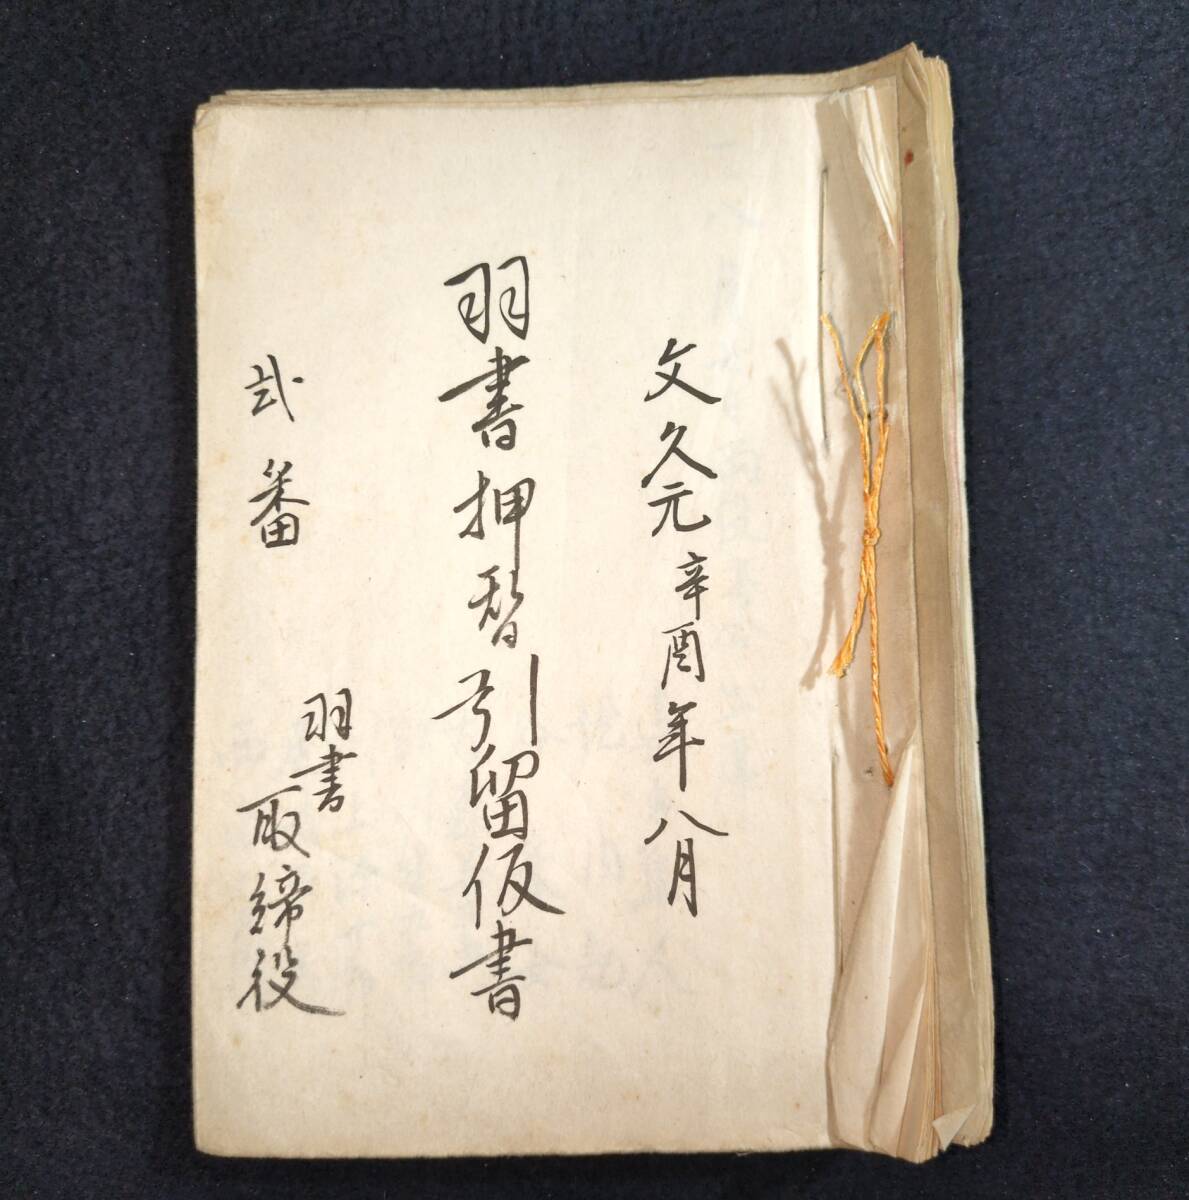 文久元辛酉年八月
羽書押替引留仮書
弐番
羽書
取締役